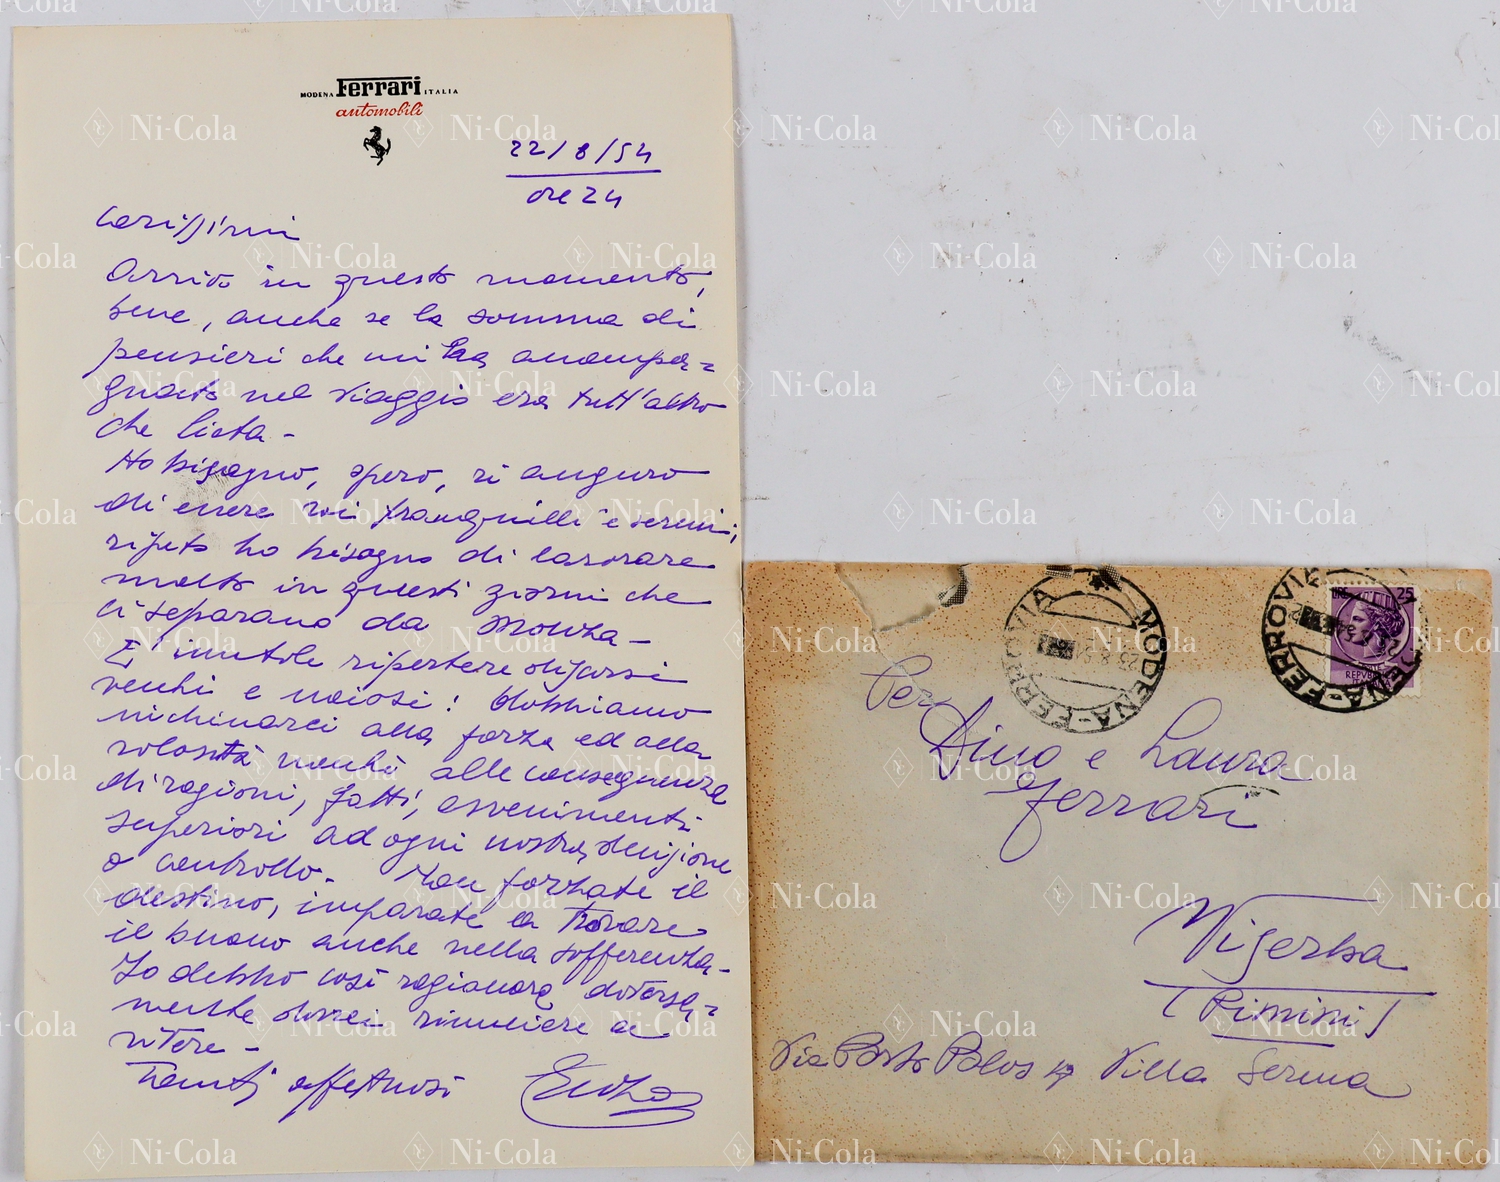 MODENA Ferrari ITALIA
automobili
22/8/54
ore 24
Carissimi
Arrivo in questo momento,
bene, anche se la somma di
pensieri che mi ha accompa=
gnato nel viaggio era tutt'altro
che lieta -
Ho bisogno, spero, vi auguro
di essere voi tranquilli e sereni;
ripeto ho bisogno di lavorare
molto in questi giorni che
ci separano da Monza -
E' inutile ripetere discorsi
vecchi e noiosi! Dobbiamo
inchinarci alla forza ed alla
volontà nonché alle conseguenze
di ragioni, fatti, avvenimenti
superiori ad ogni nostra decisione
o controllo. Non forzate il
destino, imparate a trovare
il buono anche nella sofferenza -
Io debbo così ragionare, diversa=
mente dovrei rinunciare a
vivere -
Tanti affettuosi
Enzo
MODENA-FERROVIA
25.8.54
MODENA-FERROVIA
LIRE 25
REPVBBLICA
ITALIANA
Per
Dino e Laura
Ferrari
Viserba
(Rimini)
Via Porto Palos 47 Villa Serena
Ni-Cola